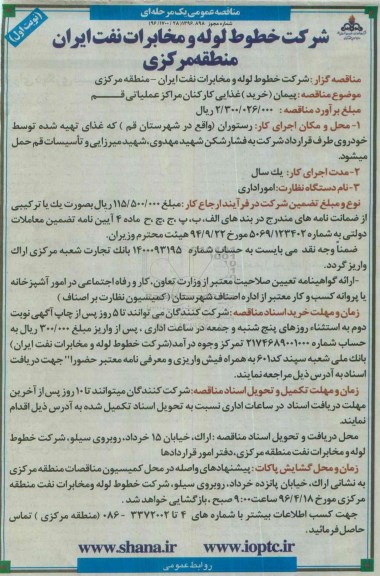 مناقصه عمومی یک مرحله ای
(نوبت اول)
شماره مجوز ۱۳۹۶.۸۹۸ / ۲۸ / ۹۶/۱۷۰۰
شرکت خطوط لوله و مخابرات نفت ایران
منطقه مرکزی
مناقصه گزار: شرکت خطوط لوله و مخابرات نفت ایران - منطقه مرکزی
موضوع مناقصه: پیمان (خرید) غذایی کارکنان مراکز عملیاتی قم
مبلغ برآورد مناقصه: ۲/۳۰۰/۰۲۶/۰۰۰ ریال
۱- محل و مکان اجرای کار: رستوران (واقع در شهرستان قم) که غذای تهیه شده توسط
خودروی طرف قرارداد شرکت به فشار شکن شهید مهدوی، شهید میرزایی و تأسیسات قم حمل
میشود.
۲- مدت اجرای کار: یك سال
۳- نام دستگاه نظارت: امور اداری
نوع و مبلغ تضمین شرکت در فرآیند ارجاع کار: مبلغ ۱۱۵/۵۰۰/۰۰۰ ریال بصورت یك یا ترکیبی
از ضمانت نامه های مندرج در بند های الف، ب، پ، ج، چ، ح ماده ۴ آیین نامه تضمین معاملات
دولتی به شماره ۱۲۳۴۰۲/ت ۵۰۶۹ مورخ ۹۴/۹/۲۲ هیئت محترم وزیران.
ضمناً وجه نقد می بایست به حساب شماره ۱۴۰۰۹۳۱۹۵ بانك تجارت شعبه مرکزی اراك
واریز گردد.
-ارائه گواهینامه تعیین صلاحیت معتبر از وزارت تعاون، کار و رفاه اجتماعی در امور آشپزخانه
یا پروانه کسب و کار معتبر از اداره اصناف شهرستان (کمیسیون نظارت بر اصناف)
زمان و مهلت خرید اسناد مناقصه: شرکت کنندگان می توانند تا ۵ روز پس از چاپ آگهی نوبت
دوم به استثناء روزهای پنج شنبه و جمعه در ساعت اداری ، پس از واریز مبلغ ۳۰۰/۰۰۰ ریال به
حساب شماره ۲۱۷۴۶۸۹۰۰۱۰۰۰ تمرکز وجوه درآمد (شرکت خطوط لوله و مخابرات نفت ایران)
بانك ملی شعبه سپند کد ۶۰۱ به همراه فیش واریزی و معرفی نامه معتبر حضورا" جهت دریافت
اسناد به آدرس ذیل مراجعه نمایند.
زمان و مهلت تکمیل و تحویل اسناد مناقصه: شرکت کنندگان میتوانند تا ۱۰ روز پس از آخرین
مهلت دریافت اسناد در ساعات اداری نسبت به تحویل اسناد تکمیل شده به آدرس ذیل اقدام
نمایند.
محل دریافت و تحویل اسناد مناقصه: اراك، خیابان ۱۵ خرداد، روبروی سیلو، شرکت خطوط
لوله و مخابرات نفت منطقه مرکزی، دفتر امور قراردادها
زمان و محل گشایش پاکات: پیشنهادهای واصله در محل کمیسیون مناقصات منطقه مرکزی
به نشانی اراك، خیابان پانزده خرداد، روبروی سیلو، شرکت خطوط لوله و مخابرات نفت منطقه
مرکزی مورخ ۹۶/۴/۱۸ ساعت ۹:۰۰ صبح ، بازگشایی خواهد شد.
جهت کسب اطلاعات بیشتر با شماره های ۴ تا ۳۳۷۲۰۰۲ - ۰۸۶ (منطقه مرکزی) تماس
حاصل فرمائید.
www.shana.ir www.ioptc.ir
روابط عمومی